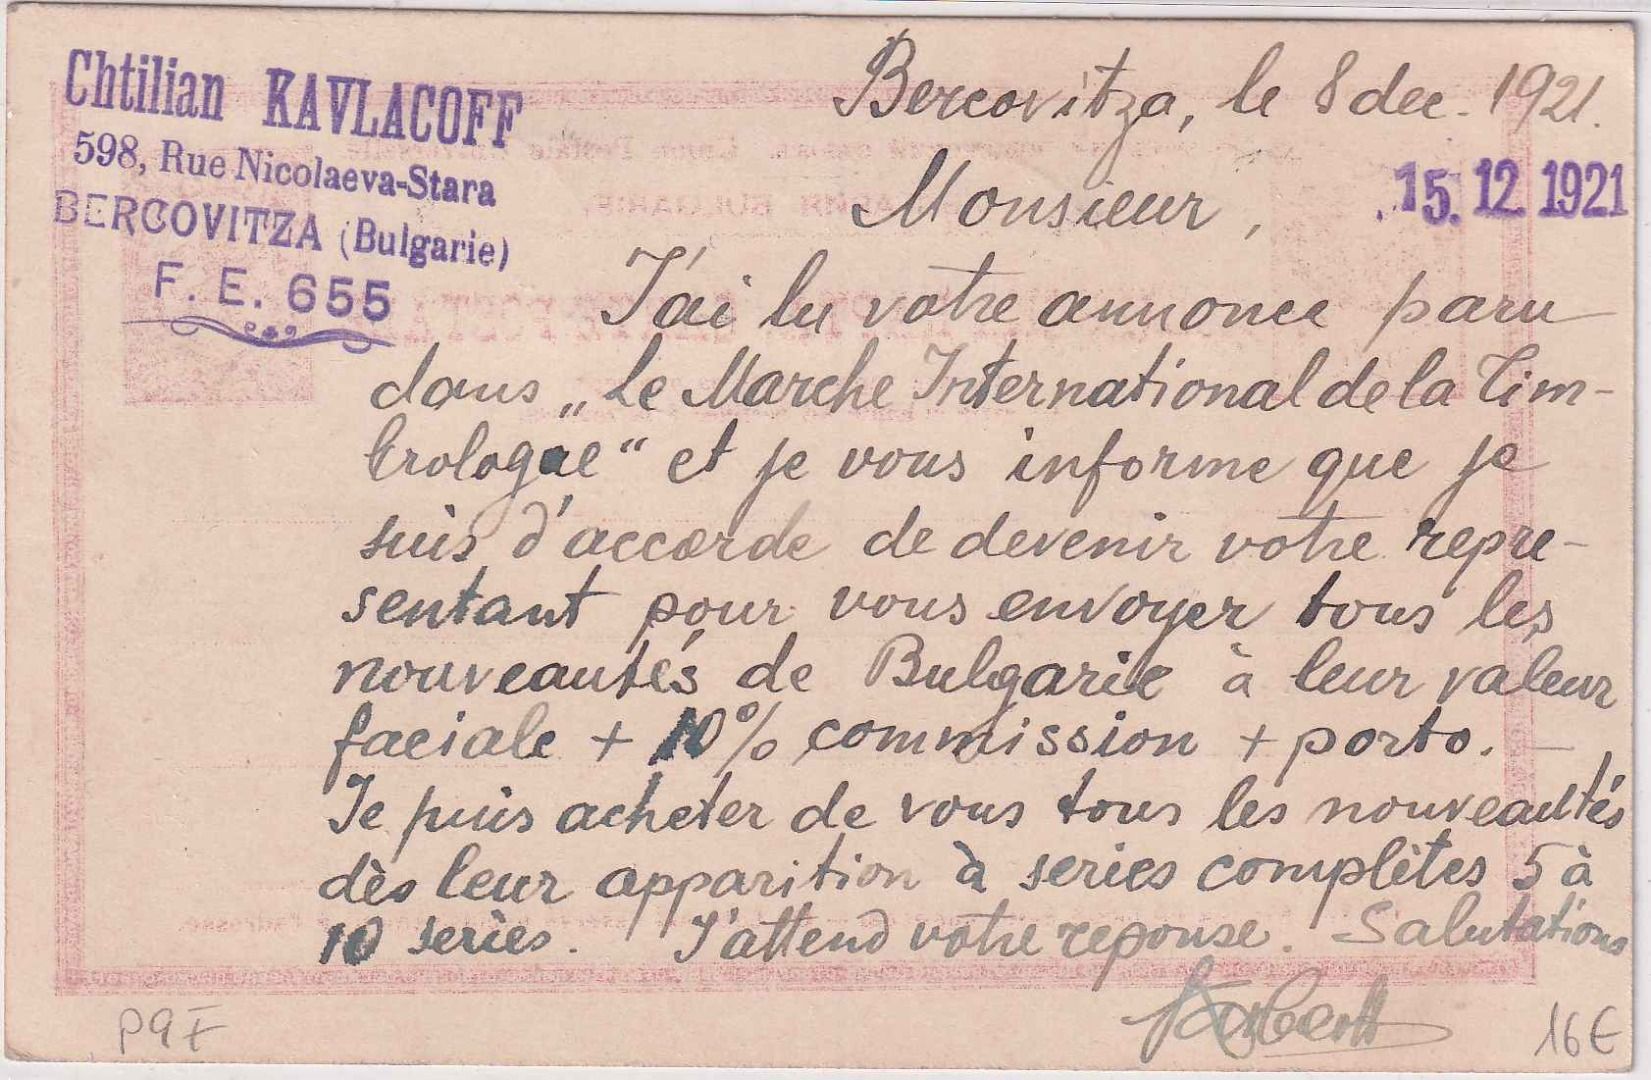 Chtilian KAVLACOFF
598, Rue Nicolaeva-Stara
BERCOVITZA (Bulgarie)
F. E. 655
Bercovitza, le 8 dec. 1921.
Monsieur,
15. 12 1921
J'ai lu votre annonce paru
dans „Le Marche International de la Tim-
brologie“ et je vous informe que je
suis d'accorde de devenir votre repre-
sentant pour vous envoyer tous les
nouveautés de Bulgarie à leur valeur
faciale + 10% commission + porto. —
Je puis acheter de vous tous les nouveautés
dès leur apparition à series complètes 5 à
10 series. J'attend votre reponse. Salutations
P9F
16€